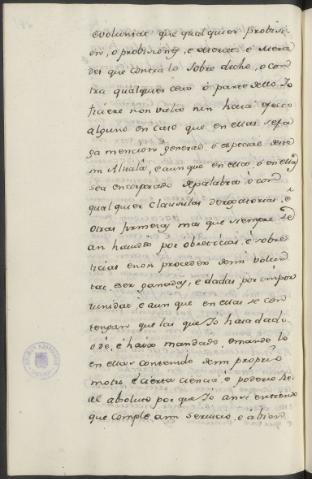 evoluntat que qualquier provision
en, o provisiones, e merced e merce
des que contra lo sobre dicho, o con
tra qualquier cosa o parte dello Io
fiziere non valan nin haia efecto
alguno en caso que en ellas se fa
ga mencion general o especial desta
mi Alvala, e aun que en ella o en ellas
sea encorporado de palabra o con
qualquier clausulas derogatorias, e
otras firmezas mas que siempre se
an havidas por obrecticias, e sobre
ticias e non proceder de mi volun
tat, e ser ganadas, e dadas por impor
unidat e aun que en ellas se con
tengan que las que Io haia dado
o de, e haia mandado, e mando lo
en ellas contenido de mi propio
motu e cierta ciencia, e poderio Re
al absoluto por que Io ansi entiendo
que cumple a mi servicio, e a bien